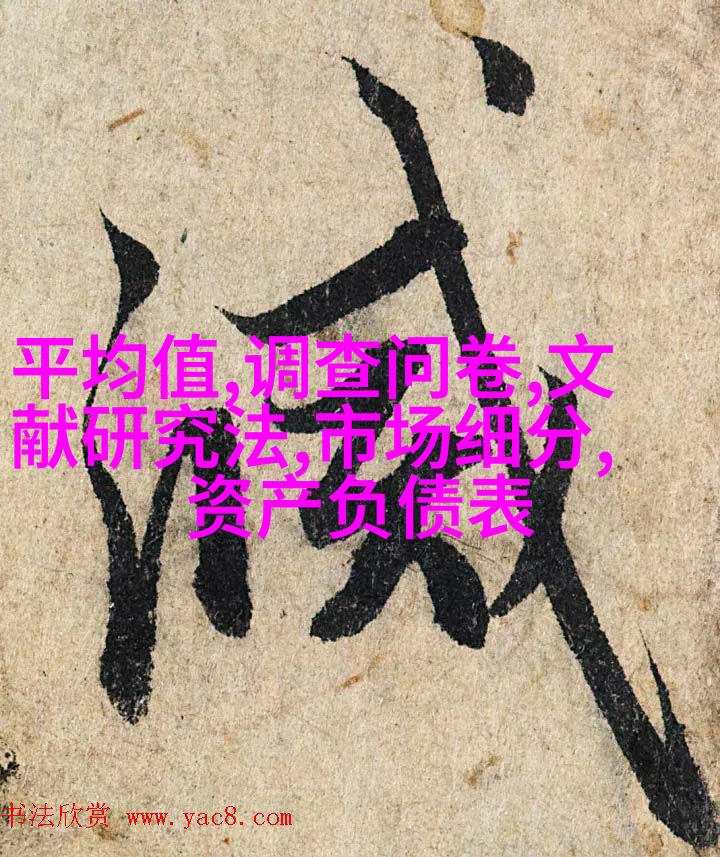 减
平均值,调查问卷,文
献研究法,市场细分,
资产负债表
书法欣赏 www.yac8.com